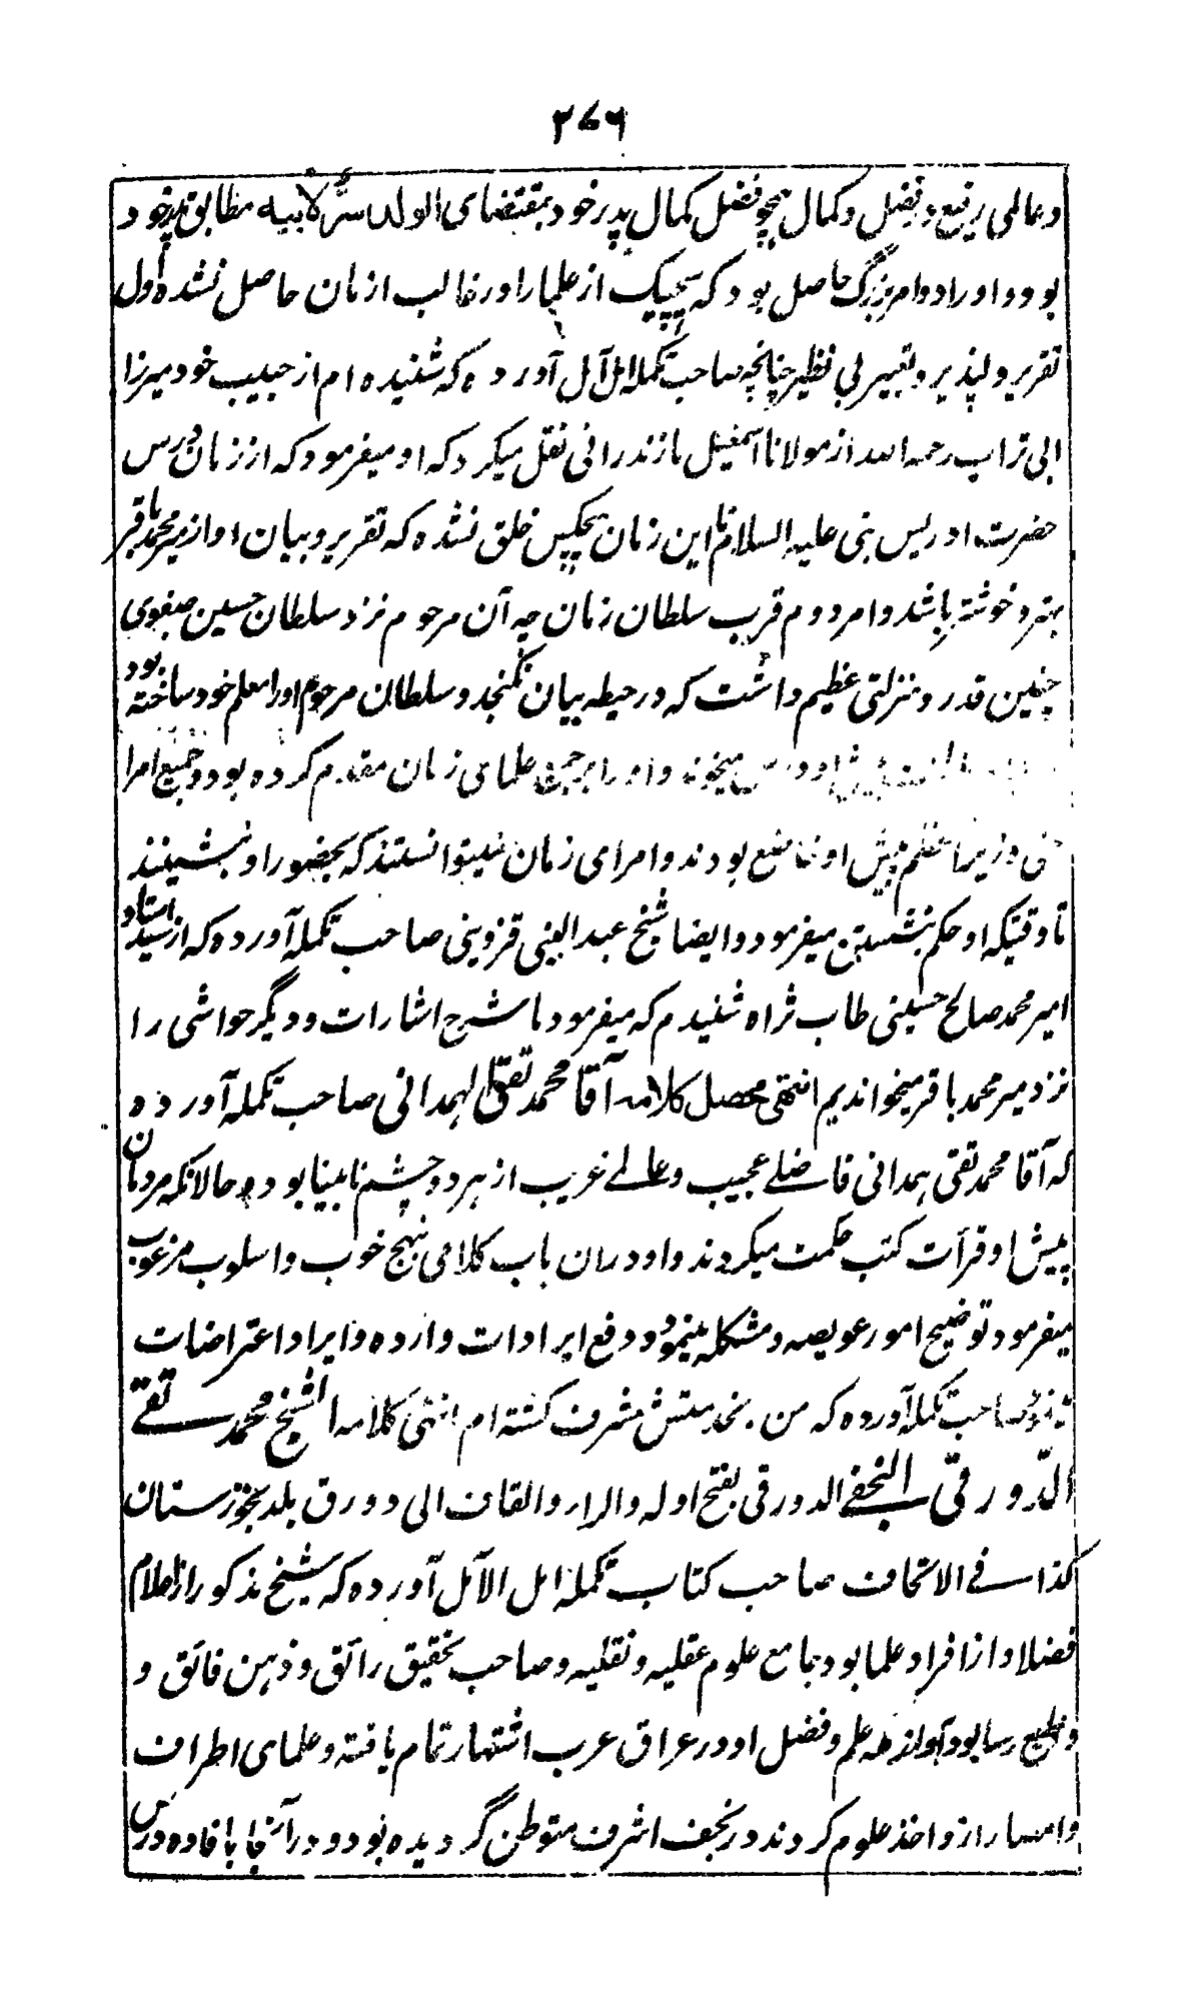 ۲۷۶
و عالمی رفیع و فضل و کمال ہمچو فضل کمال پدر خود بمقتضای الولد سرٌّ لابیه مطابق پدر خود
بود و او را دو امر بزرگ حاصل بود که ہیچیک از علما را در غالب ازمان حاصل نشده اول
تقریر دلپذیر و تعبیر بی نظیر چنانچه صاحب تکملہ امل آمل آورده که شنیده ام از حبیب خود میرزا
ابی تراب رحمه الله از مولانا اسمعیل مازندرانی نقل میکرد که او میفرمود که از زمان درس
حضرت ادریس نبی علیه السلام تا این زمان ہیچکس خلق نشده که تقریر و بیان او از میر محمد باقر
بہتر و خوشتر باشد و امر دوم قرب سلطان زمان چه آن مرحوم نزد سلطان حسین صفوی
چنین قدر و منزلتی عظیم داشت که در حیطه بیان نگنجد و سلطان مرحوم او را معلم خود ساخته بود
او درس میخواند و او را بر جمیع علمای زمان مقدم کرده بود و جمیع امرا
وزیر اعظم پیش او خاضع بودند و امرای زمان نمیتوانستند که بحضور او بنشینند
تا وقتیکه او حکم نشستن میفرمود و ایضا شیخ عبد النبی قزوینی صاحب تکملہ آورده که از سید استاد
امیر محمد صالح حسینی طاب ثراه شنیدم که میفرمود ما شرح اشارات و دیگر حواشی را
نزد میر محمد باقر میخواندیم انتهی محصل کلامه آقا محمد تقی الہمدانی صاحب تکملہ آورده
که آقا محمد تقی ہمدانی فاضلے عجیب و عالمے غریب از ہر دو چشم نابینا بوده حالانکه مردمان
پیش او قرأت کتب حکمت میکردند و او در ان باب کلامی نہج خوب و اسلوب مرغوب
میفرمود توضیح امور عویصه و مشکله مینمود و دفع ایرادات وارده و ایراد اعتراضات
صاحب تکملہ آورده که من بخدمتش مشرف گشته ام انتهی کلامه الشیخ محمد تقے
الدّورقی النجفے الدورقی بفتح اوله والراء والقاف الی دورق بلد بخوزستان
کذا فے الاتحاف صاحب کتاب تکملہ امل الآمل آورده که شیخ مذکور از اعلام
فضلا و از افراد علما بود جامع علوم عقلیه و نقلیه و صاحب تحقیق رائق و ذہن فائق و
و طبع رسا بود و آوازه علم و فضل او در عراق عرب اشتہار تمام یافته و علمای اطراف
و امصار از و اخذ علوم کردند در نجف اشرف متوطن گردیده بود و در آنجا بافاده درس